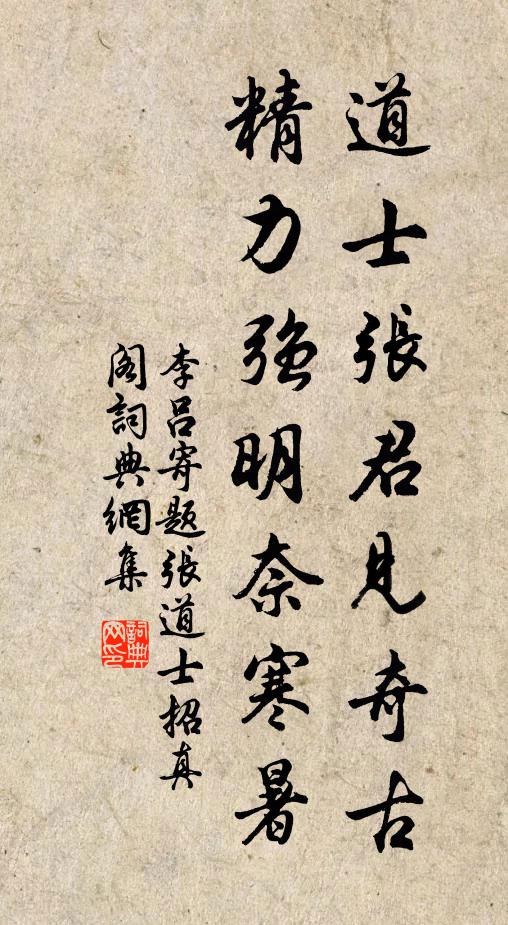 道士張君見奇古
精力強明奈寒暑
李呂寄题張道士招真
阁詞典網集
詞典
网印